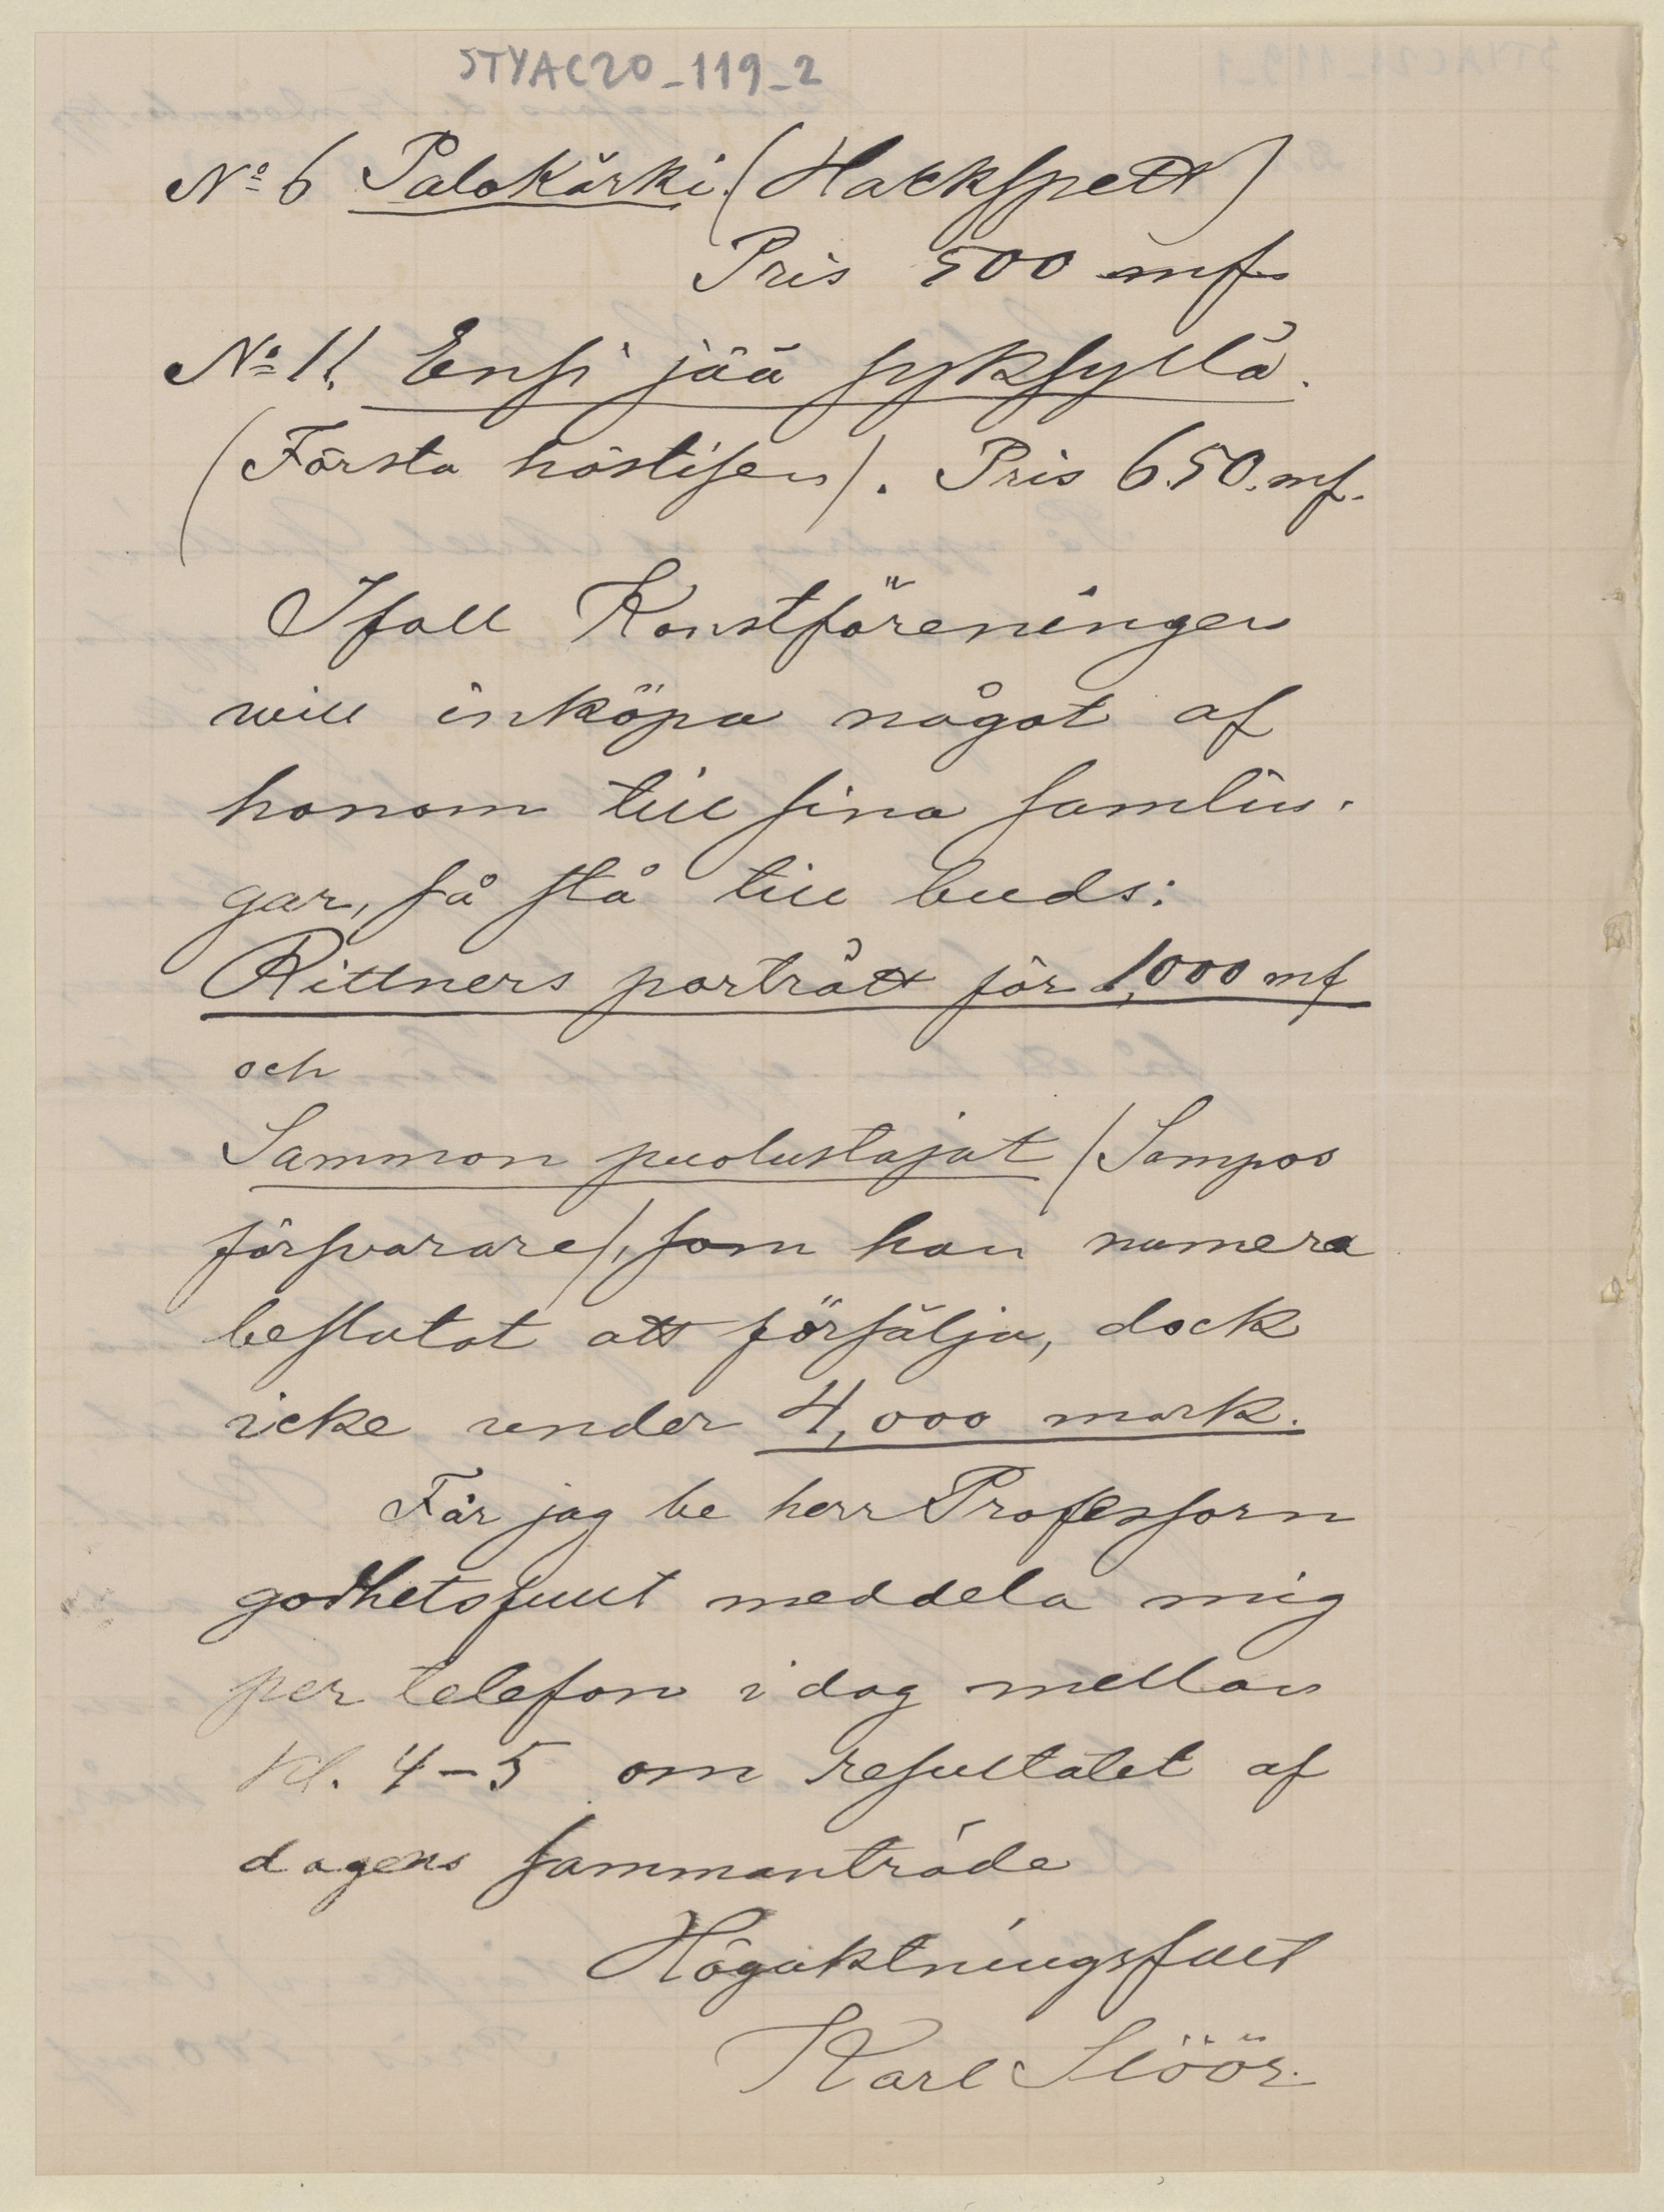 STYAC20_119_2
No 6 Palokärki (Hackspett)
Pris 500 mk
No 11. Ensi jää syksyllä.
(Första höstisen). Pris 650. mk.
Ifall Konstföreningen
will inköpa något af
honom till sina samlin-
gar, så stå till buds:
Rittners porträtt för 1,000 mk
och
Sammon puolustajat (Sampos
försvarare), som han numera
beslutat att försälja, dock
icke under 4,000 mark.
Får jag be herr Professorn
godhetsfullt meddela mig
per telefon i dag mellan
kl. 4-5 om resultatet af
dagens sammanträde
Högaktningsfullt
Karl Slöör.